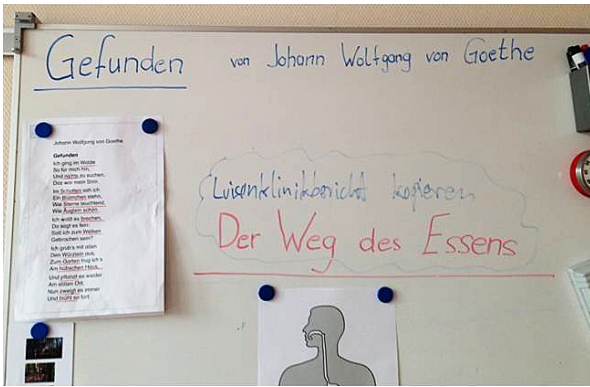 Gefunden von Johann Wolfgang von Goethe
Johann Wolfgang von Goethe
Gefunden
Ich ging im Walde
So für mich hin,
Und nichts zu suchen,
Das war mein Sinn.
Im Schatten sah ich
Ein Blümchen stehn,
Wie Sterne leuchtend,
Wie Äuglein schön.
Ich wollt es brechen,
Da sagt es fein:
Soll ich zum Welken
Gebrochen sein?
Ich grub's mit allen
Den Würzlein aus,
Zum Garten trug ich's
Am hübschen Haus.
Und pflanzt es wieder
Am stillen Ort;
Nun zweigt es immer
Und blüht so fort.
Luisenklinikbericht kopieren
Der Weg des Essens